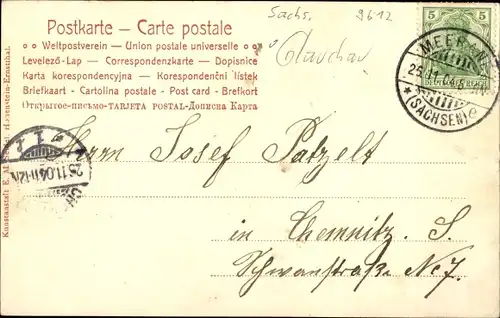 Sachs. 9612
Glauchau
Postkarte – Carte postale
Weltpostverein – Union postale universelle
Levelező-Lap – Correspondenzkarte – Dopisnice
Karta korespondencyjna – Korespondenční lístek
Briefkaart – Cartolina postale – Post card – Brefkort
Открытое-письмо-TARJETA POSTAL-Дописна Карта
5 5
MEERANE
25.11.04
*(SACHSEN)
25.11.04
Kunstanstalt Hohenstein-Ernstthal.
Herrn Josef Patzelt
in Chemnitz. i. S.
Schwanstraße No 7.